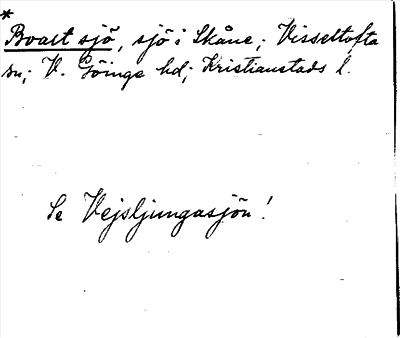 *
Boalt sjö, sjö i Skåne; Visseltofta
sn; V. Göinge hd; Kristianstads l.
Se Vejsljungasjön!